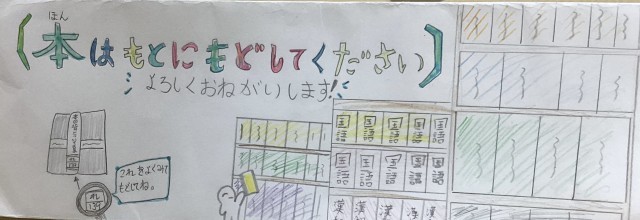 ほん
(本はもとにもどしてください)
よろしくおねがいします!!
これをよくみて
もどしてね。
国語 国語 国語 国語 国語
国語 国語 国語 国語 国語
漢 漢 漢 漢 漢